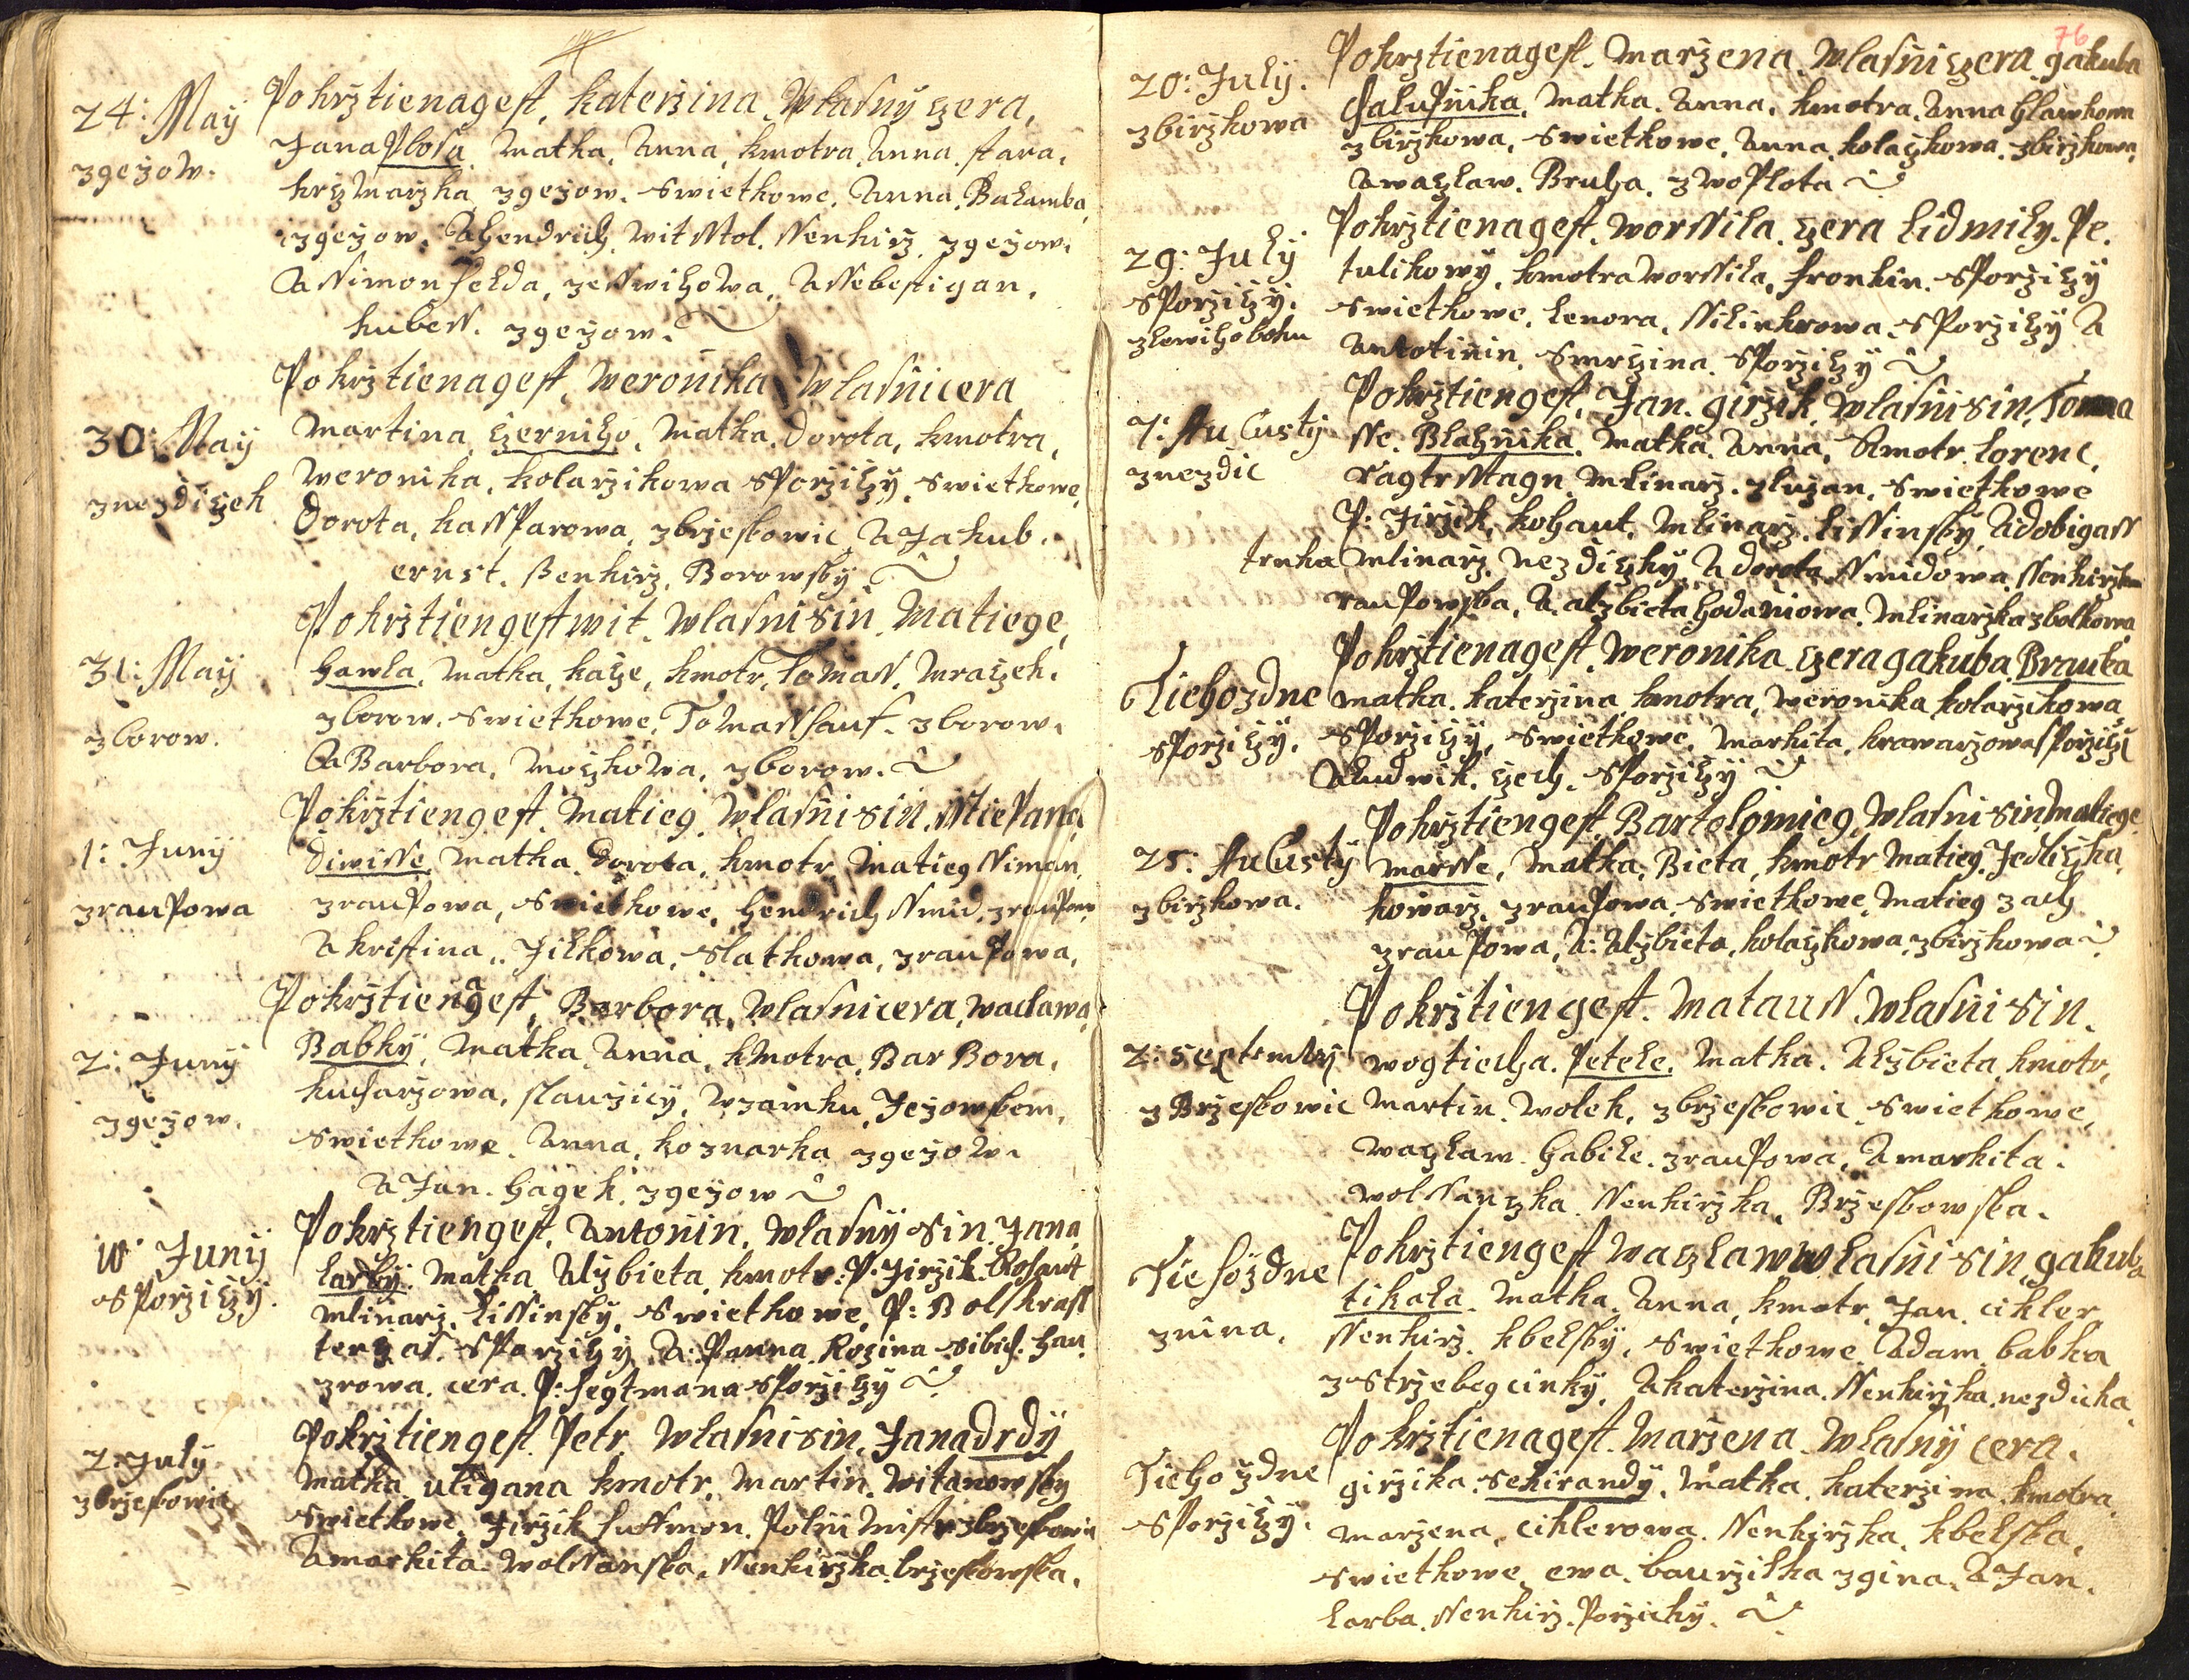 24: May
zgezow.
Pokrztienagest, Katerzina, Wlasny czera,
Jana Plosa, Matka, Anna, kmotra, Anna, stara,
krczmarzka, zgezow. Swietkowe, Anna, Balamba,
zgezow, A Hendrich, Wit Mol, Nenkirz, zgezow.
A Ssimon Felda, A Ssebestigan,
kubess. zgezow.
30: May
znezdiczek
Pokrztienagest, Weronika, Wlasnicera
Martina, Czerniho, Matka, Dorota, kmotra,
Weronika, kolarzikowa sPorziczy, Swietkowe,
Dorota, kassParowa, zbrzeskowic A Jakub.
ernst. Benkirz, Borowsky
31: May
zborow.
Pokrztiengest wit. Wlasni sin, Matiege,
Hawla, Matka, kacze, kmotr, Tomass, Mraczek.
zborow. Swietkowe, Tomass sauf. zborow.
A Barbora, Moczkowa, zborow.
1: Juny
zrauPowa
Pokrztiengest, Matieg, Wlasni sin, SstiePana
Diwisse, Matka Dorota, kmotr Matieg Ssiman,
zrauPowa, Swietkowe, Hendrich Ssmid, zrauPowa
A kristina, Jilkowa, Slatkowa, zrauPowa,
2: Juny
zgezow.
Pokrztienagest, Barbora, Wlasnicera, waclawa,
Babky, Matka Anna, kmotra, BarBora,
kucharzowa, slauzicy, Wzamku, Jezowskem,
Swietkowe, Anna, koznarka zgezow.
A Jan. Hagek, zgezow
10: Juny
sPorziczy.
Pokrztiengest, Antonin, Wlasny sin, Jana
Larby, Matka Alzbieta, kmotr: P: Jirzik Kohaut
Mlinarz, Lissinsky, Swietkowe, P: Bolskrass
sPorziczy, A: Panna Rozina
zrowa. cera. P: hegtmana sPorziczy
2: July
zbrzeskowic
Pokrztiengest, Petr, Wlasni sin, Jana Drdy
Matka, uligana kmotr, Martin, Witanowsky
Swietkowe, Jirzik Fussmon. Polni Mistr zbrzeskowic
A markita, Wolssanska, Nenkirzka brzeskowska.
76
20: July.
zbirzkowa
Pokrztienagest, Marzena, Wlasni czera gakuba
ChaluPnika, Matka, Anna, kmotra, Anna Hlawkowa
zbirzkowa, Swietkowe, Anna, kolaczkowa, zbirzkowa,
A waczlaw. Bruha. z woPlota
29: July
sPorziczy.
zlewiho boku
Pokrztienagest, Worssila, czera lidmily. Pe.
tulikowy, kmotra Worssila, fronkin. sPorziczy
Swietkowe. Lenora, Silinkrowa. sPorziczy A
Antotinin, Smrczina. sPorziczy
7: AuGusty
znezdic
Pokrztiengest, Jan. girzik, Wlasni sin, Toma
sse. Blahnika, Matka, Anna, kmotr Lorenc,
Ragtrsstagn, Mlinarz. zluzan. Swietkowe
P: Jirzik, kohaut, Mlinarz, Lissinsky, A dobigass
trnka Mlinarz nezdiczky, A dorota Ssmidowa, Nenkirzka
rauPowska, A. alzbieta Hodaniowa, Mlinarzka zbolkowa
Tiehozdne
sPorziczy.
Pokrztienagest, Weronika czera gakuba Brauka
Matka, katerzina kmotra, Weronika kolarzikowa,
sPorziczy, Swietkowe, Markita, krawarzowa sPorziczy
A Ludwik, czech. sPorziczy
25: AuGusty
zbirzkowa.
Pokrztiengest Bartolomieg, Wlasni sin, Matiege
Marsse, Matka, Bieta, kmotr Matieg Jedliczka,
kowarz. zrauPowa. Swietkowe, Matieg zach
zrauPowa, A: Alzbieta, kolaczkowa, zbirzkowa
2: Septembry
z Brzeskowic
Pokrztiengest. Matauss, Wlasni sin.
wogtiecha. Petele. Matka. Alzbieta, kmotr,
Martin. Wolek, zbrzeskowic. Swietkowe,
waczlaw. Habile. zrauPowa, A markita.
wolssanczka. Nenkirzka, Brzeskowska.
Tiehozdne
znina,
Pokrztiengest waczlaw wlasni sin, gakuba
tikala. Matka, Anna, kmotr, Jan, cikler,
Nenkirz. kbelsky. Swietkowe. Adam babka
zstrzebegcinky, A katerzina, Nenkirzka, nezdicka,
Tiehozdne
sPorziczy.
Pokrztienagest. Marzena. Wlasny cera.
girzika. Sekirandy, Matka, katerzina kmotra
Marzena, ciklerowa. Nenkirzka, kbelska,
Swietkowe, ewa. baurzilka zgina, A Jan.
Larba, Nenkirz. Porziczky.